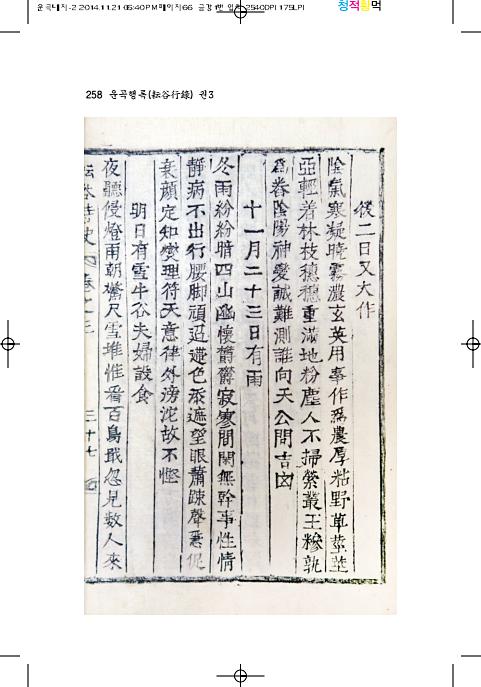 운곡내지-2 2014.11.21 05:40 PM 페이지66
청적황먹
258 운곡행록(耘谷行錄) 권3
後二日又大作
陰氣寒凝曉霧濃玄英用事作爲農厚粘野草莖莖
亞輕着林枝穗穗重滿地粉塵人不掃縈叢玉糝孰
爲舂陰陽神變誠難測誰向天公問吉凶
十一月二十三日有雨
冬雨紛紛暗四山幽懷欝欝寂寥間閑無幹事性情
靜病不出行腰脚頑近邊色添遮望眼蕭踈聲急促
衰顔定知燮理符天意律外滂沱故不慳
明日有雪牛谷夫婦設食
夜聽侵燈雨朝驚尺雪堆惟看百鳥戢忽見数人來
卷之三
三十七